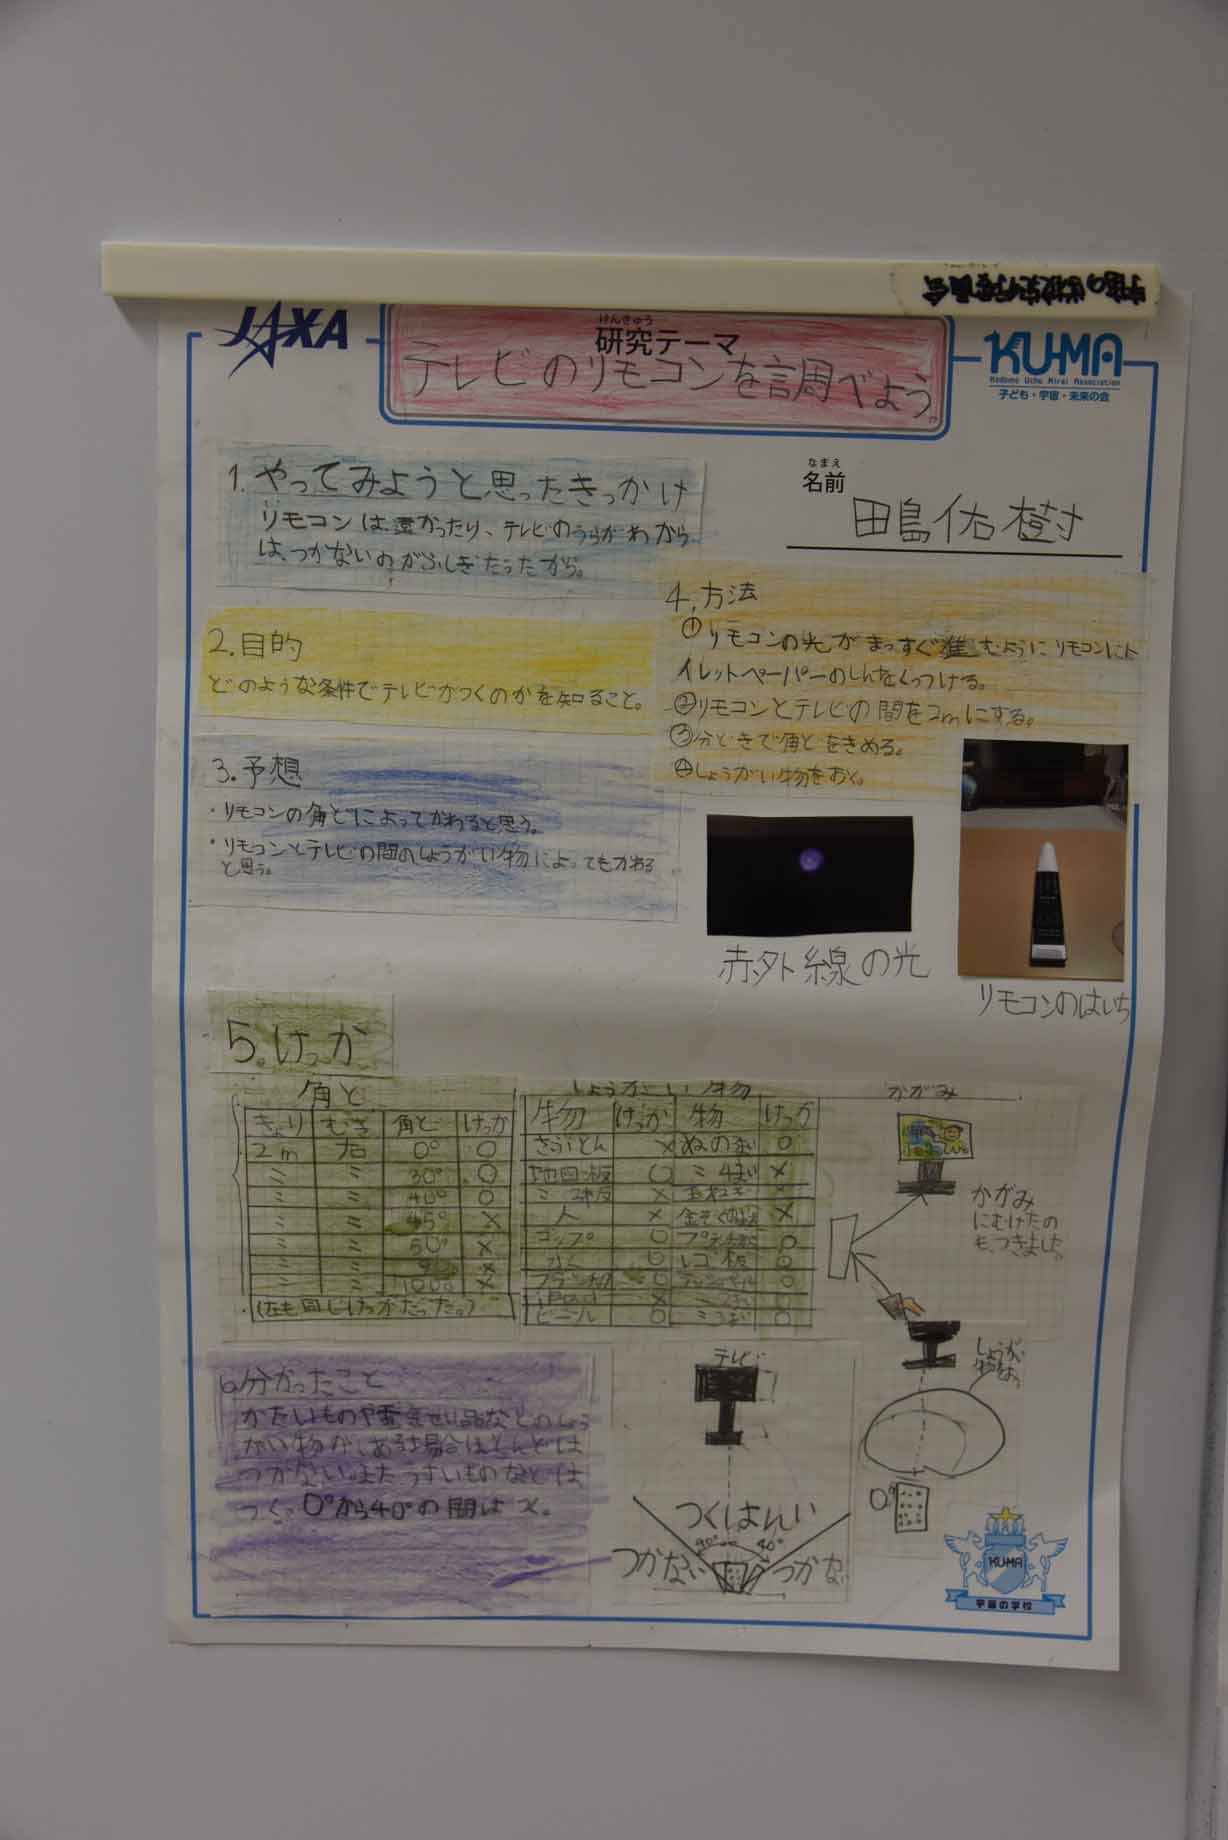 JAXA
けんきゅう
研究テーマ
テレビのリモコンを調べよう。
KU-MA
Kodomo Uchu Mirai Association
子ども・宇宙・未来の会
なまえ
名前
田島佑樹
1.やってみようと思ったきっかけ
リモコンは、遠かったり、テレビのうらがわから
は、つかないのがふしぎだったから。
2.目的
どのような条件でテレビがつくのかを知ること。
3.予想
・リモコンの角どによってかわると思う。
・リモコンとテレビの間のしょうがい物によってもかわる
と思う。
4.方法
①リモコンの光がまっすぐ進むようにリモコンにト
イレットペーパーのしんをくっつける。
②リモコンとテレビの間を2mにする。
③分どきで角どをきめる。
④しょうがい物をおく。
赤外線の光
リモコンのはいち
5.けっか
角ど
きょり むき 角ど けっか
2m 右 0° ○
ミ ミ 30° ○
ミ ミ 40° ○
ミ ミ 45° ×
ミ ミ 50° ×
ミ ミ 90° ×
ミ ミ 100° ×
(左も同じけっかだった。)
しょうがい物
物 けっか 物 けっか
ざぶとん × ぬの ○
×
人 × ×
コップ ○ ○
○ レゴ板 ○
○ ○
iPad × ○
ビニール ○ ○
かがみ
かがみ
にむけたの
も、つきました。
6.分かったこと
かたいものや金せい品などのしょう
がい物がある場合ほとんどは
つかない。またうすいものなどは
つく。0°から40°の間はつく。
テレビ
つくはんい
40°
つかない
つかない
しょうがい
物
0°
KU-MA
宇宙の学校